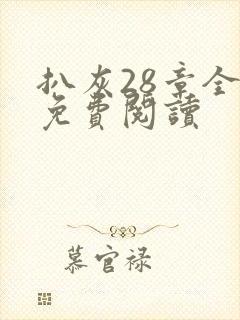 扒灰28章全
免費閱讀
慕官禄